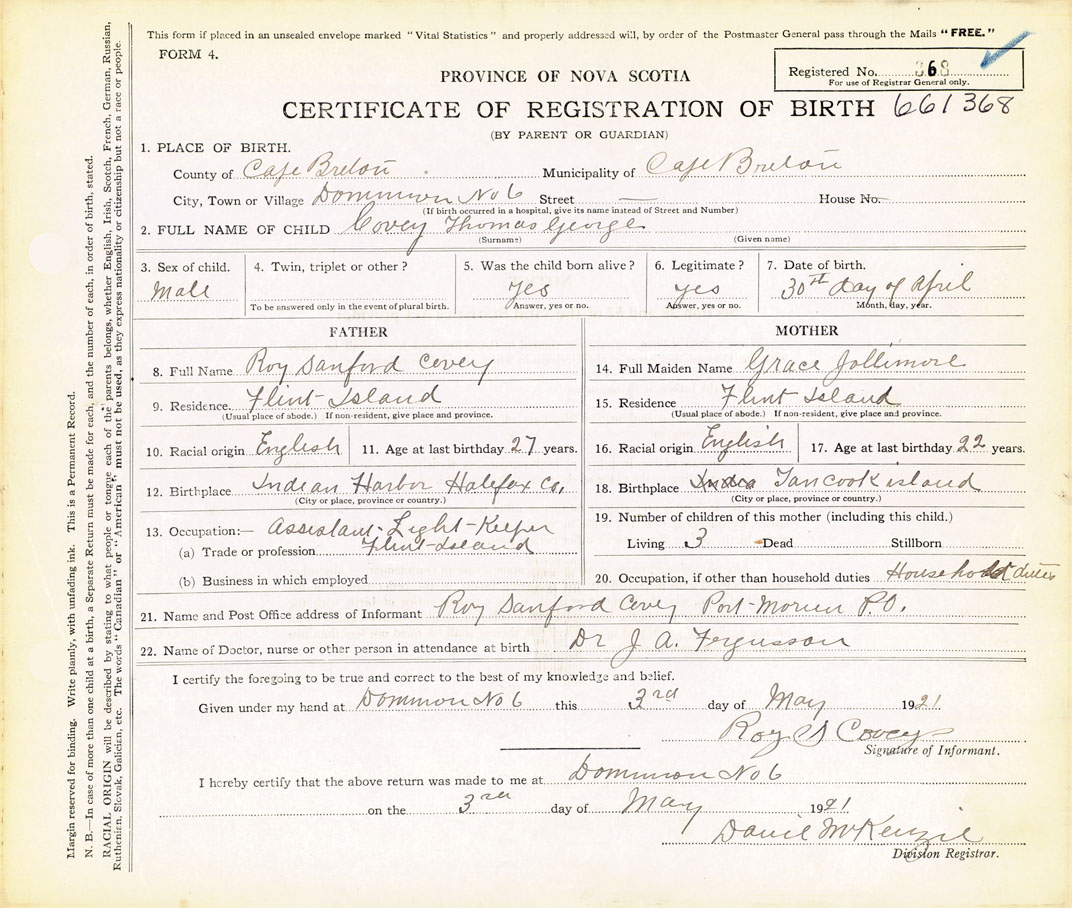 This form if placed in an unsealed envelope marked "Vital Statistics" and properly addressed will, by order of the Postmaster General pass through the Mails "FREE."
FORM 4.
Registered No. 368
For use of Registrar General only.
PROVINCE OF NOVA SCOTIA
CERTIFICATE OF REGISTRATION OF BIRTH 661368
(BY PARENT OR GUARDIAN)
1. PLACE OF BIRTH.
County of Cape Breton Municipality of Cape Breton
City, Town or Village Dominion No 6 Street — House No.
(If birth occurred in a hospital, give its name instead of Street and Number)
2. FULL NAME OF CHILD Covey Thomas George
(Surname) (Given name)
3. Sex of child. 4. Twin, triplet or other? 5. Was the child born alive? 6. Legitimate? 7. Date of birth.
Male yes yes 30th day of April
To be answered only in the event of plural birth. Answer, yes or no. Answer, yes or no. Month, day, year.
FATHER
8. Full Name Roy Sanford Covey
9. Residence Flint Island
(Usual place of abode.) If non-resident, give place and province.
10. Racial origin English 11. Age at last birthday 27 years.
12. Birthplace Indian Harbor Halefax Co,
(City or place, province or country.)
13. Occupation:— Assistant-Light-Keeper
(a) Trade or profession Flint-Island
(b) Business in which employed
MOTHER
14. Full Maiden Name Grace Jollimore
15. Residence Flint Island
(Usual place of abode.) If non-resident, give place and province.
16. Racial origin English 17. Age at last birthday 22 years.
18. Birthplace Tancook island
(City or place, province or country.)
19. Number of children of this mother (including this child.)
Living 3 Dead Stillborn
20. Occupation, if other than household duties Household duties
21. Name and Post Office address of Informant Roy Sanford Covey Port-Morien P.O.
22. Name of Doctor, nurse or other person in attendance at birth Dr J. A. Fergusson
I certify the foregoing to be true and correct to the best of my knowledge and belief.
Given under my hand at Dominion No 6 this 3rd day of May 1921.
Roy S Covey
Signature of Informant.
I hereby certify that the above return was made to me at Dominion No 6
on the 3rd day of May 1921
McKenzie
Division Registrar.
Margin reserved for binding. Write plainly, with unfading ink. This is a Permanent Record.
N. B.—In case of more than one child at a birth, a Separate Return must be made for each, and the number of each, in order of birth, stated.
RACIAL ORIGIN will be described by stating to what people or tongue each of the parents belongs, whether English, Irish, Scotch, French, German, Russian,
Ruthenian, Slovak, Galician, etc. The words "Canadian" or "American" must not be used, as they express nationality or citizenship but not a race or people.